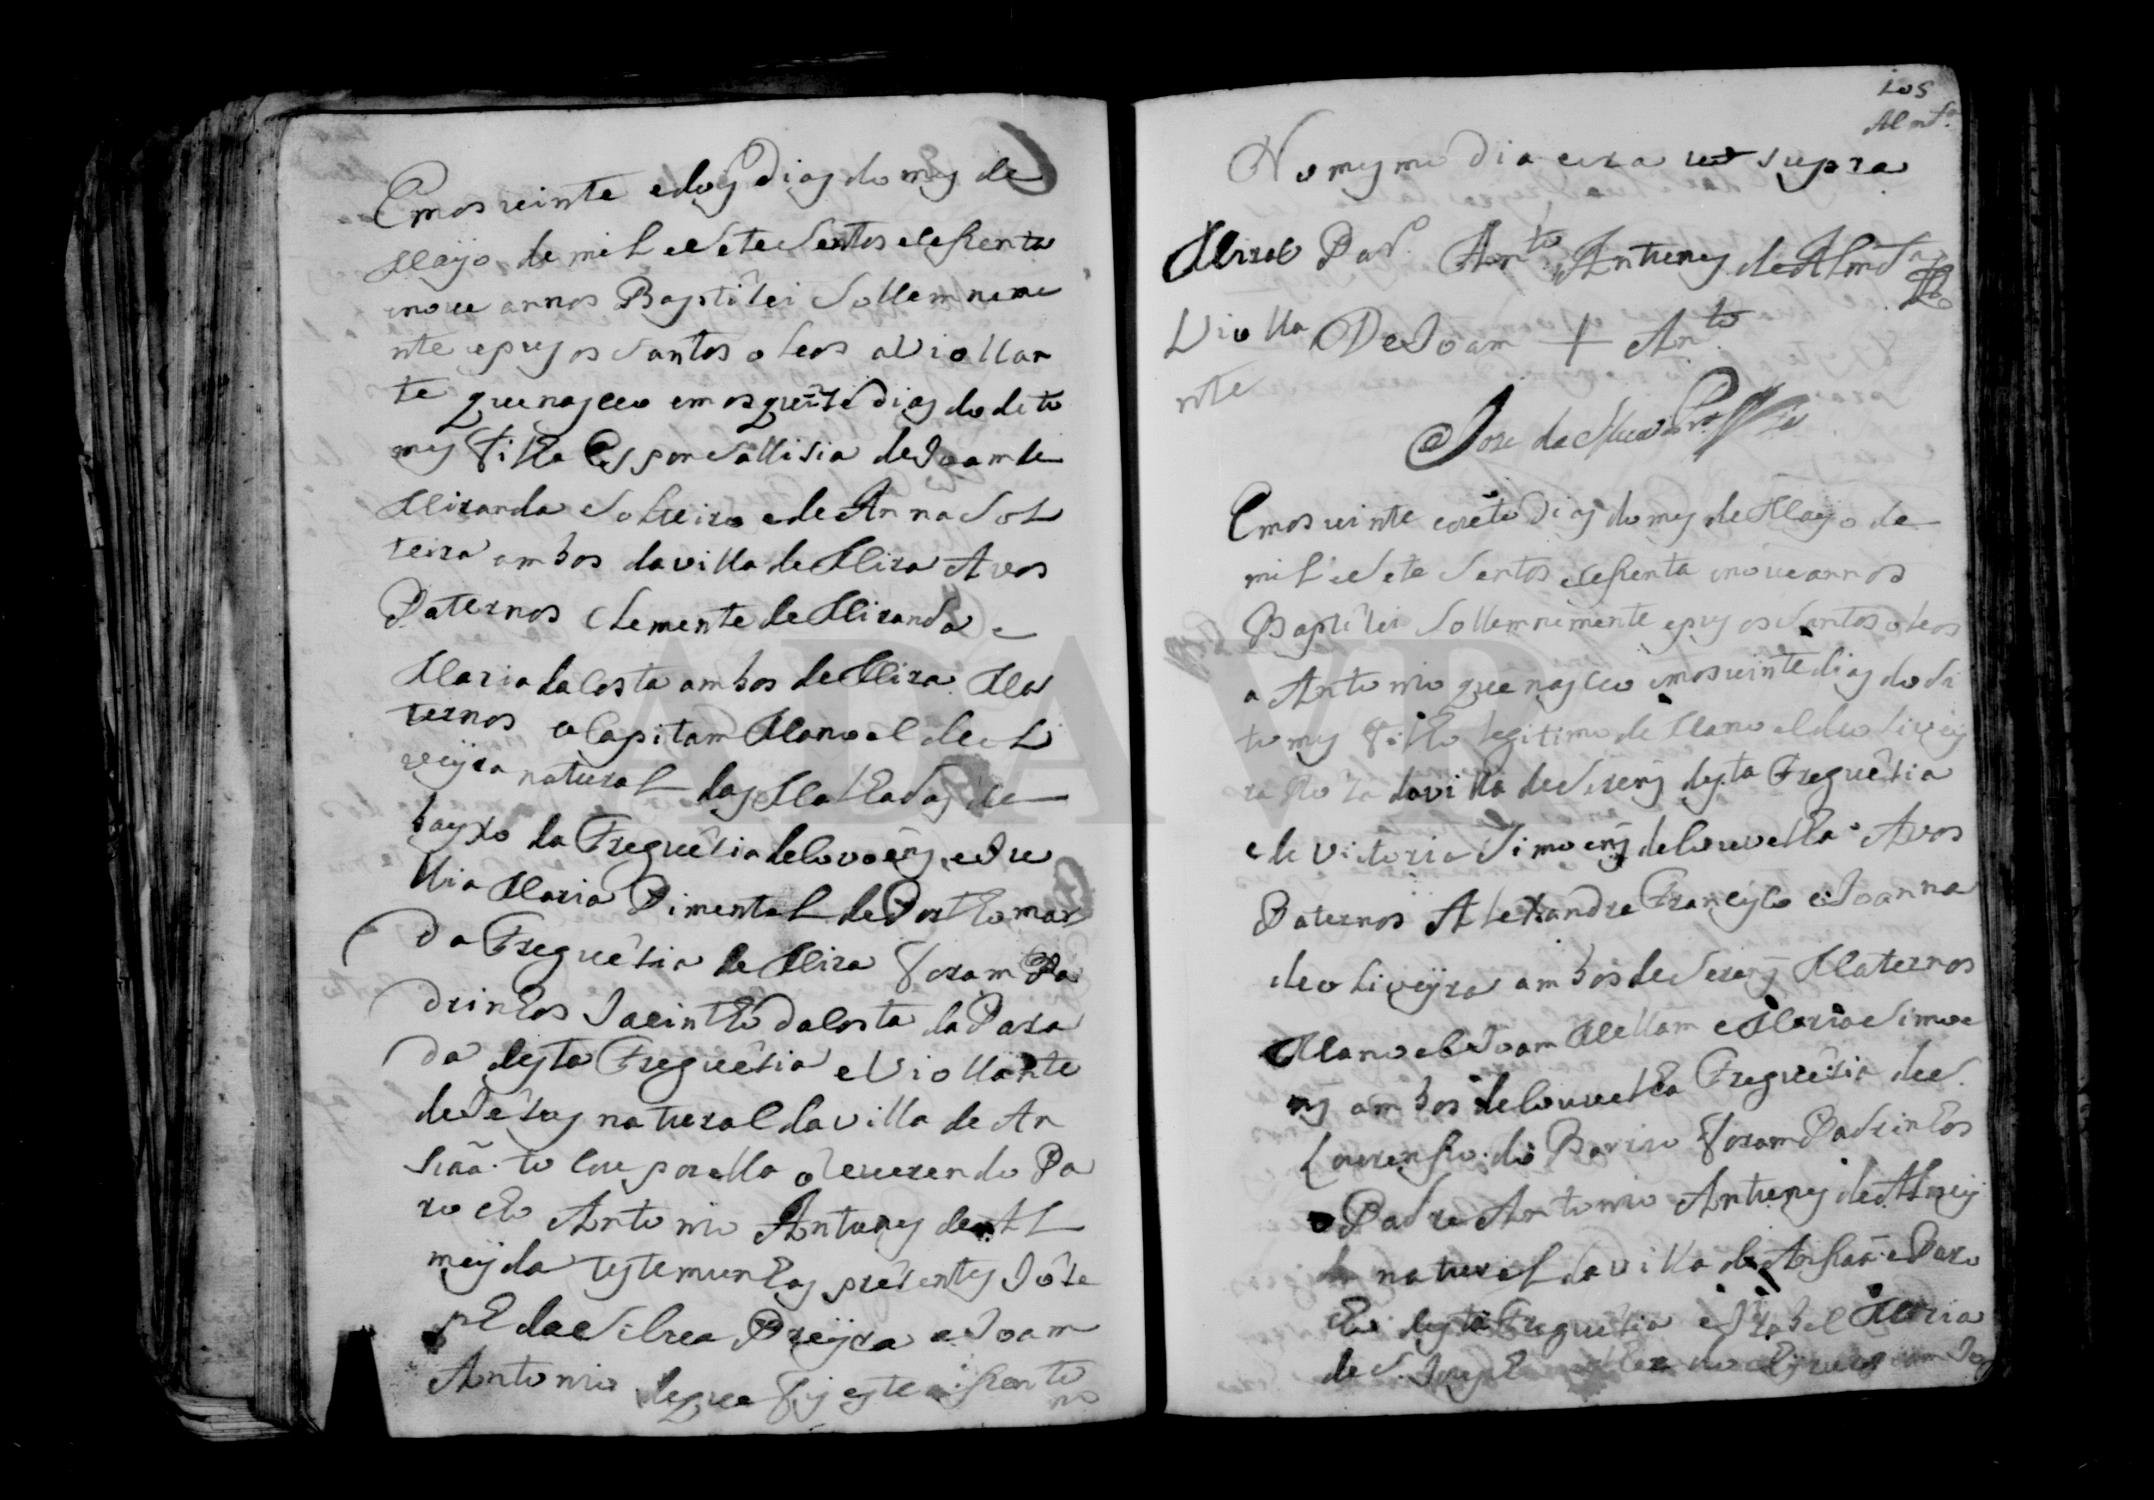 Emos vinte e doys Dias do mes de
Mayo de mil e sete sentos e seßenta
e nove annos Baptisei Sollemneme
nte e puz os santos oleos a Viollan
te que nasceo emos quinse Dias do dito
mes filha Esponsallisia de Joam de
Miranda solteiro e de Anna Sol
teira ambos da villa de Mira Avos
Paternos Clemente de Miranda e
Maria da Costa ambos de Mira Ma
ternos o Capitam Manoel de oli
veyra natural das Malhadas de
bayxo da Freguesia de Covoens e Ju
llia Maria Pimental de Portomar
Da Freguesia de Mira foram Pa
drinhos Jacintho da Costa da Para
da desta Freguesia e Viollante
de Jesus natural da villa de An
siaã tocou por ella o Reverendo Pa
rocho Antonio Antunes de Al
meyda testemunhas presentes Jose
ph da Silvea Preyra e Joam
Antonio de que fis este aßento
no
ADAVR
105
Almda
No mesmo dia e era ut supra
Mirae Par. Anto Antunes de Almda
Violla De Joam + Anto
nte
Jose da Silva Pra
Emos vinte e oeto Dias do mes de Mayo de
mil e sete sentos e seßenta e nove annos
Baptisei Sollemnemente e puz os santos oleos
a Antonio que nasceo emos vinte dias do di
to mes filho legitimo de Manoel de oliveij
ra da villa de Serem desta Freguesia
e de Victoria Simoens de Couvelha Avos
Paternos Alexandre Francisco e Joanna
de oliveyra ambos de Serem Maternos
Manoel Joam Mellam e Maria Simoe
ns ambos de Couvelha Freguesia de S.
Lourenßo do Bairro foram Padrinhos
o Padre Antonio Antunes de Almey
da natural da villa de Anßiaã e Paro
cho desta Freguesia e Izabel Maria
de S. Joseph